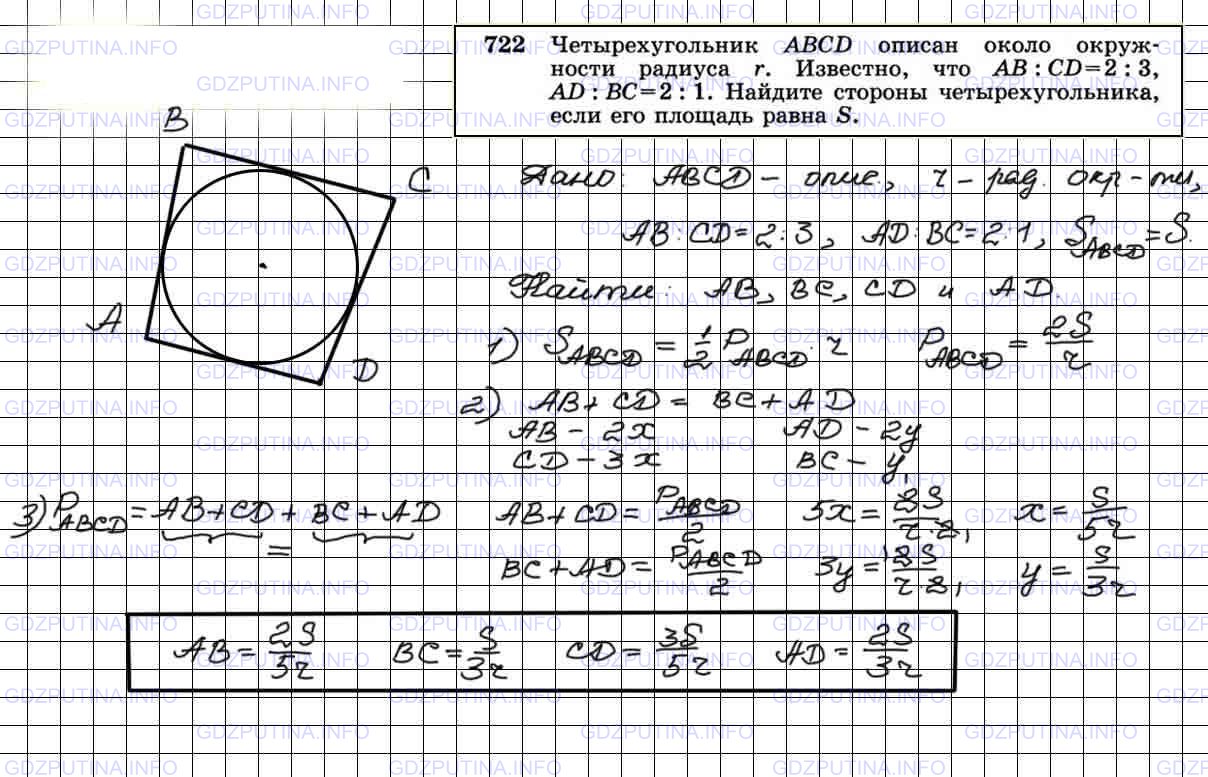 722 Четырехугольник ABCD описан около окруж-
ности радиуса r. Известно, что AB : CD=2 : 3,
AD : BC=2 : 1. Найдите стороны четырехугольника,
если его площадь равна S.
B
C
A
D
Дано: ABCD - опис., r - рад. окр-ти,
AB:CD=2:3, AD:BC=2:1, S_ABCD=S.
Найти: AB, BC, CD и AD.
1) S_ABCD = 1/2 P_ABCD · r P_ABCD = 2S/r
2) AB + CD = BC + AD
AB - 2x AD - 2y
CD - 3x BC - y
3) P_ABCD = AB+CD + BC+AD AB+CD = P_ABCD/2 5x = 2S/r·2, x = S/5r
= BC+AD = P_ABCD/2 3y = 2S/r·2, y = S/3r
AB = 2S/5r BC = S/3r CD = 3S/5r AD = 2S/3r
GDZPUTINA.INFO